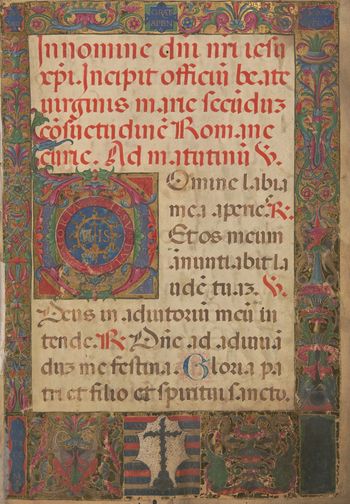 In nomine dñi nri iesu
xp̃i. Incipit officiũ beate
uirginis marie secũduz
cõsuetudinẽ Romane
curie. Ad matutinũ ℣.
Omine labia
mea aperie. ℞.
Et os meum
anuntiabit la
udẽ tuaz. ℣.
Deus in adiutoriũ meũ in
tende. ℞ Dñe ad adiuua
duz me festina. Gloria pa
tri et filio et spiritui sancto.